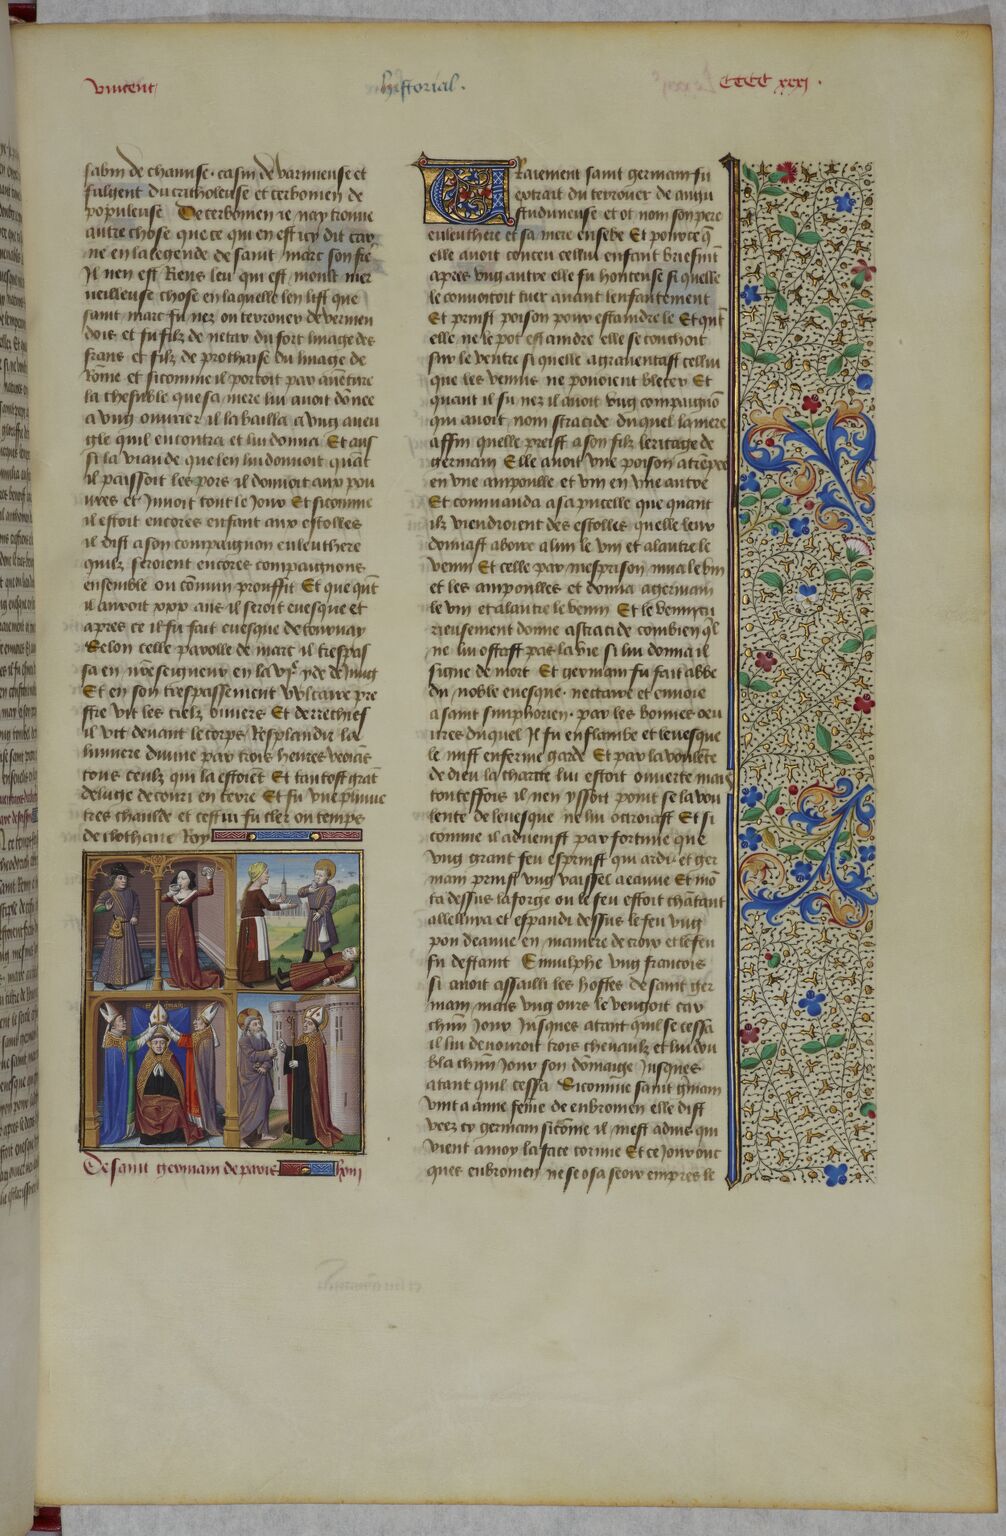 vincent historial. CCCC xxxj.
sabin de chanuse. casin de varimeuse et
fulgent du critholeuse et cerbomen de
populeuse De cerbomen ie nay trouue
autre chose que ce qui en est icy dit car
ne en la legende de saint marc son fre
Il nen est Riens leu qui est moult mer
ueilleuse chose en laquelle len list que
saint marc fu nez ou terrouer de vermen
dois et fu filz de netar du fort linage des
frans et filz de prothaise du linage de
Rome et sicomme il portoit par auenture
la chesuble que sa mere lui auoit donee
a vng ouurier il la bailla a vng aueu
gle quil encontra et lui donna Et aus
si la viande que len lui donnoit quant
il paissoit les pors il donnoit aux pou
ures et Junoit tout le Jour Et sicomme
il estoit encores enfant aux escolles
il dist a son compaignon euleuthere
quilz seroient encores compaignons
ensemble ou comun prouffit Et que qnt
il auroit xxx ans il seroit euesque et
apres ce il fu fait euesque de tournay
Selon celle parolle de marc il trespas
sa en nre seigneur en la
Et en son trespassement vulcaire pre
stre vit les cielz ouuers Et derrechief
il vit deuant le corps Resplandir la
lumiere diuine par trois heures veoians
tous ceulz qui la estoient Et tantost grant
deluge decouri en terre Et fu vne pluuie
tres chaulde et cestui fu cler ou temps
de clothaire Roy
De saint germain de paris
Vraiement saint germain fu
extrait du terrouer de augu
studuneuse et ot nom son pere
euleuthere et sa mere eusebe Et pource q
elle auoit conceu cellui enfant briefmt
apres vng autre elle fu honteuse si quelle
le conuoitoit tuer auant lenfantement
Et prinst poison pour estaindre le Et qnt
elle ne le pot estaindre elle se couchoit
sur le ventre si quelle agrauentast cellui
que les venins ne pouoient blecer Et
quant il fu nez il auoit vng compaignon
qui auoit nom stracide duquel la mere
affin quelle preist a son filz leritage de
germain Elle auoit vne poison atrempee
en vne ampoulle et vin en vne autre
Et commanda a sa pucelle que quant
ilz viendroient des escolles quelle leur
donnast aboire alun le vin et alautre le
venin Et celle par mesprison mua le vin
et les ampoulles et donna a germain
le vin et alautre le venin Et le venin cu
rieusement donne a stracide combien ql
ne lui ostast pas la vie si lui donna il
signe de mort Et germain fu fait abbe
du noble euesque. nectaire et enuoie
a saint simphorien. par les bonnes oeu
ures duquel Il fu enflambe et leuesque
le mist enferme garde Et par la voulente
de dieu la chartre lui estoit ouuerte mais
touteffois il nen yssoit point se la vou
lente de leuesque ne lui octroiast Et si
comme il aduenist par fortune que
vng grant feu esprinst qui ardi et ger
main prinst vng vaissel a eaue Et mon
ta dessus la forge ou le feu estoit chantant
alleluya et espandi dessus le feu vng
pou deaue en maniere de rour et le feu
fu destaint Emulphe vng francois
si auoit assailli les hostes de saint ger
main mais vng ours le vengoit car
chun Jour Jusques atant quil se cessa
il lui deuouroit trois cheuaulz et lui dou
bla chun Jour son domaige Jusques
atant quil cessa Sicomme saint gmain
vint a anne feme de eubromen elle dist
veez cy germain sicome il mest aduis qui
vient a moy la face cornue Et ce Jour onc
ques eubromen ne se osa seoir empres le